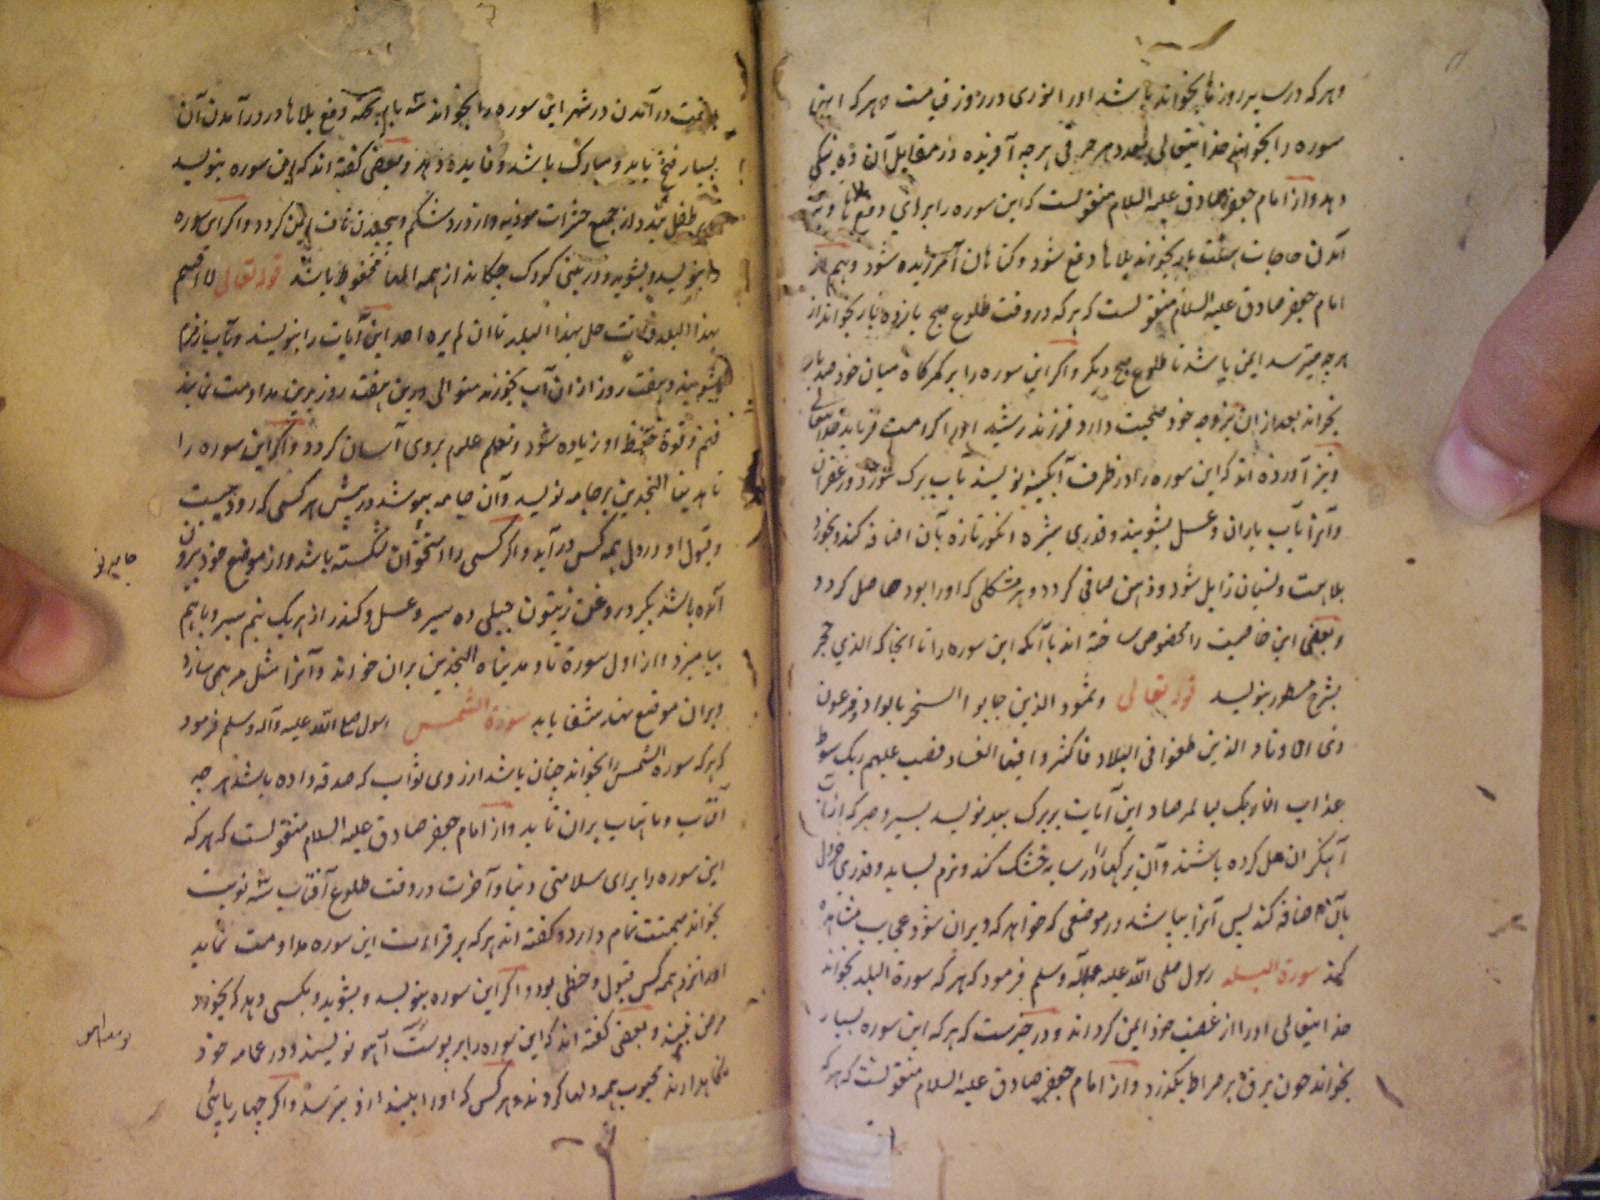 و هر که در سایر روزها بخواند باشد او را نوری در روز قیامت و هر که این
سوره را بخواند خدایتعالی بعدد هر حرفی هر چه آفریده در مقابل آن ده نیکی
دهد و از امام جعفر صادق علیه السلام منقولست که این سوره را برای دفع بلاها و بر
آمدن حاجات هشت بار بخواند بلاها دفع شود و گناهان آمرزیده شود و هم از
امام جعفر صادق علیه السلام منقولست که هر که در وقت طلوع صبح یازده بار بخواند از
هر چه میترسد ایمن باشد تا طلوع صبح دیگر و اگر این سوره را بر کمرگاه میان خود صد بار
بخواند بعد از آن بزوجه خود صحبت دارد فرزند رشید او را کرامت فرماید خدایتعالی
و نیز آورده اند که این سوره را در ظرف آبگینه نویسند بآب برک و زعفران
و آنرا بآب باران و عسل بشویند و قدری شیره انگور تازه بآن اضافه کند و بخورد
بلاهت و نسیان زایل شود و ذهن صافی گردد و هر مشکلی که او را بود حاصل گردد
و بعضی این خاصیت را مخصوص ساخته اند بآنکه این سوره را تا اینجا که الذی حجر
بشرح مسطور بنویسد قوله تعالی و ثمود الذین جابوا الصخر بالواد و فرعون
ذی الاوتاد الذین طغوا فی البلاد فاکثروا فیها الفساد فصب علیهم ربک سوط
عذاب ان ربک لبالمرصاد این آیات بر برک بید نویسد بسیر و سرکه
آهنگران حل کرده باشند و آن برگها را در سایه خشک کند و نرم بساید و قدری خردل
بآن اضافه کند پس آنرا بپاشد در موضعی که خواهد که ویران شود عجایب مشاهده
کند سورة البلد رسول صلی الله علیه و آله و سلم فرمود که هر که سورة البلد بخواند
خدایتعالی او را از غضب خود ایمن گرداند و در خبرست که هر که این سوره بسیار
بخواند چون برق بر صراط بگذرد و از امام جعفر صادق علیه السلام منقولست که هر که
وقت در آمدن در شهر این سوره را بخواند سه بار بجهة دفع بلاها و در درآمدن آن
بسیار فتح یابد و مبارک باشد و فایده دهد و بعضی گفته اند که این سوره بنویسد
بر طفل بندد از جمیع حشرات موذیه و از درد شکم و پیچیدن ناف ایمن گردد و اگر این سوره
را بنویسد و بشوید و در بینی کودک چکاند از همه المها محفوظ باشد قوله تعالی لا اقسم
بهذا البلد و انت حل بهذا البلد تا ان لم یره احد این آیات را بنویسند و بآب زمزم
بشویند و هفت روز از آن آب بخورند متوالی و درین هفت روز برین مداومت نمایند
فهم و قوة حفظ او زیاده شود و تعلم علوم بروی آسان گردد و اگر این سوره را
تا هدیناه النجدین بر جامه نویسد و آن جامه بپوشد در پیش هر کسی که رود هیبت
و قبول او در دل همه کس در آید و اگر کسی را استخوان شکسته باشد و از موضع خود بیرون
آمده باشد بگیرد روغن زیتون جبلی ده سیر و عسل و کندر از هر یک پنج سیر و با هم
بیامیزد و از اول سورة تا و هدیناه النجدین بران خواند و آنرا مثل مرهمی سازد
و بران موضع نهد شفا یابد سورة الشمس رسول صلی الله علیه و آله و سلم فرمود
که هر که سوره الشمس را بخواند چنان باشد از روی ثواب که صدقه داده باشد بهر چه
آفتاب و ماهتاب بران تابد و از امام جعفر صادق علیه السلام منقولست که هر که
این سوره را برای سلامتی دنیا و آخرت در وقت طلوع آفتاب سه نوبت
بخواند میمنت تمام دارد و گفته اند هر که بر قراءت این سوره مداومت نماید
او را نزد همه کس قبول و حظی بود و اگر این سوره بنویسد و بشوید و بکسی دهد که بخورد
و بعضی گفته اند که این سوره را بر پوست آهو نویسند و در عمامه خود
نگاهدارند محبوب همه دلها گردند و هر کس که او را ببیند از او بترسد و اگر چهار پائی